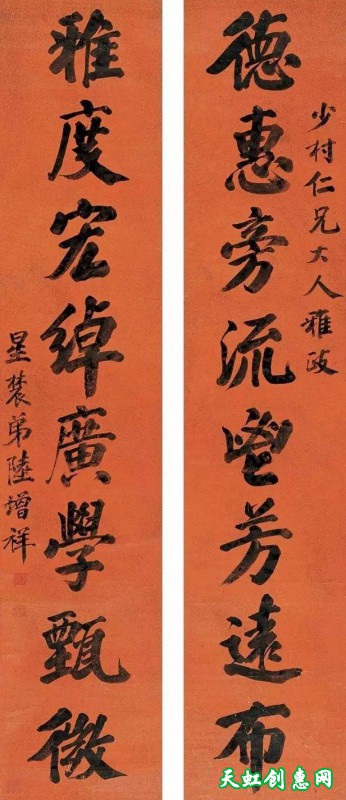 少村仁兄大人雅政
德惠旁流鬯芳遠布
雅度宏綽廣學甄微
星辳弟陸增祥
天虹创惠网